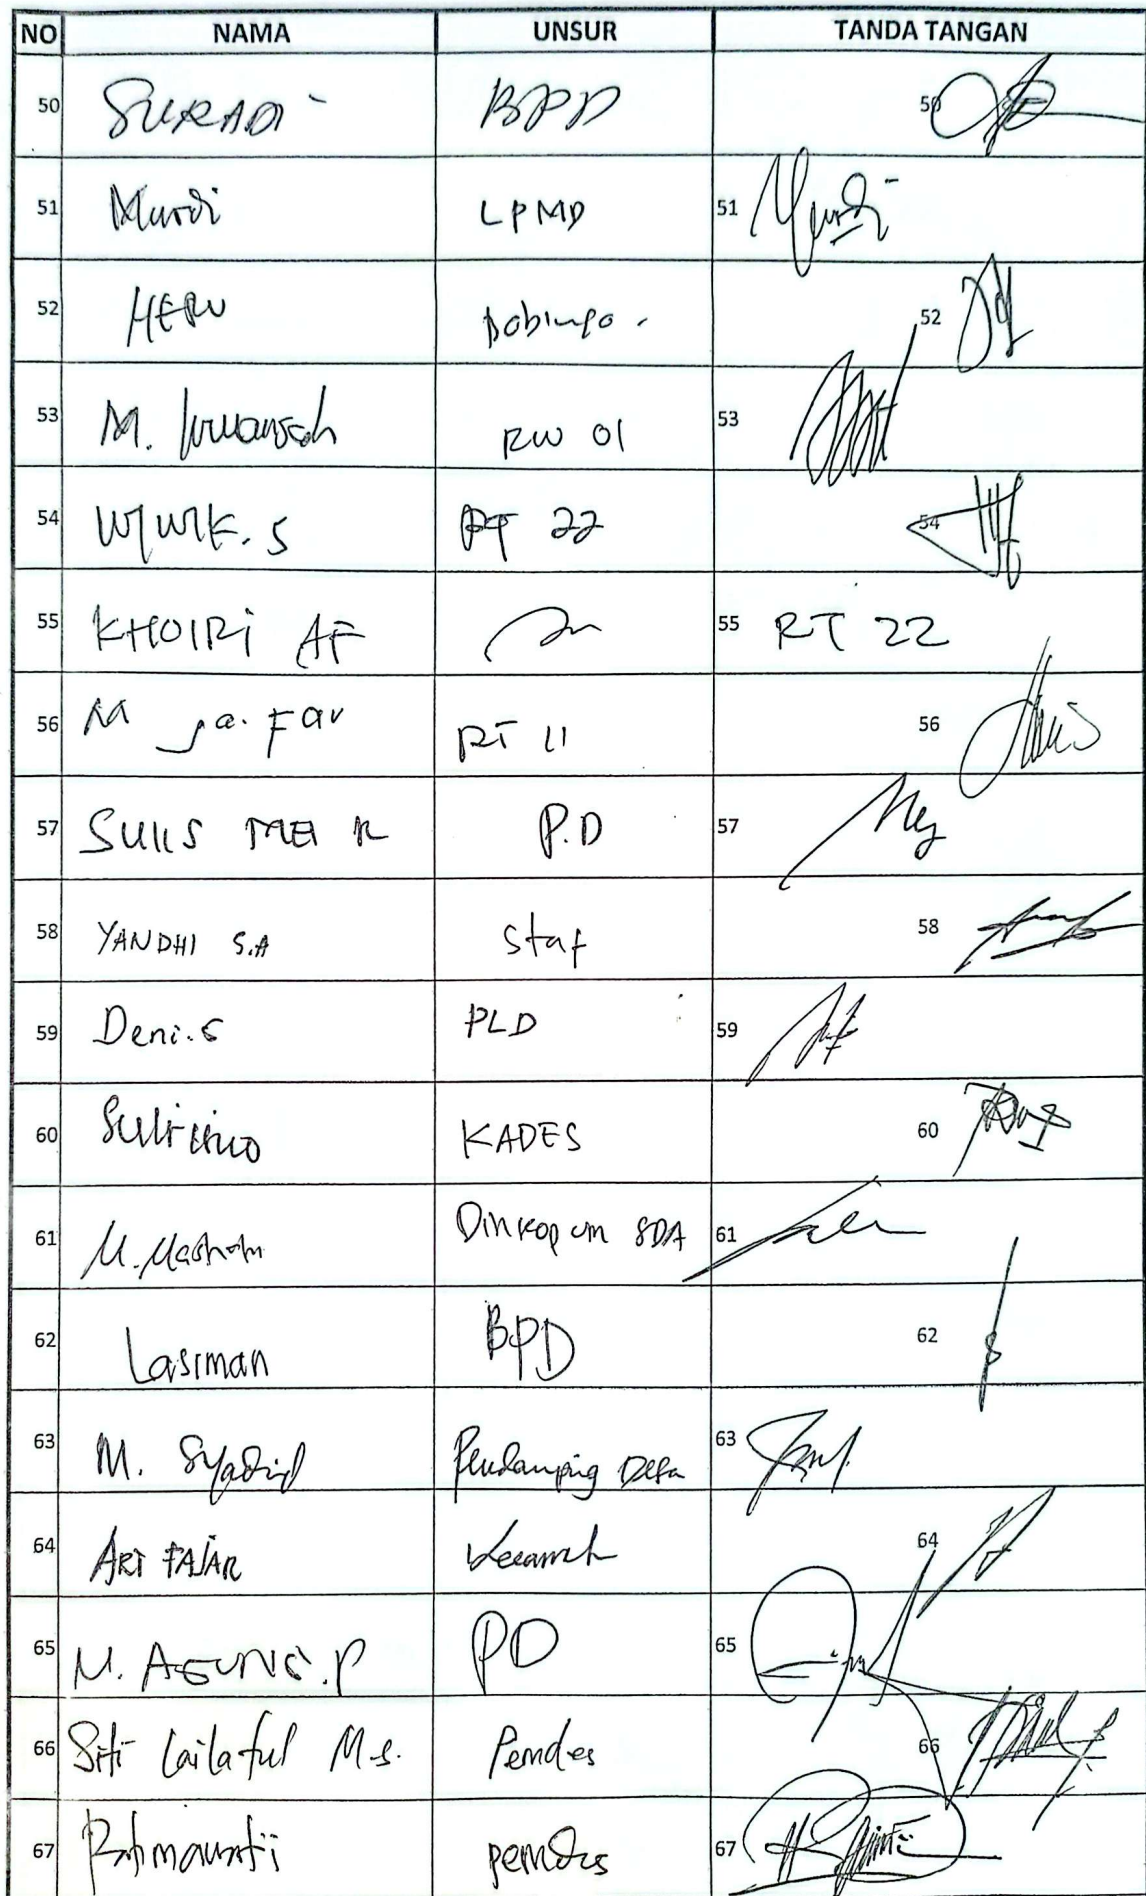 NO NAMA UNSUR TANDA TANGAN
50 SURADI BPD 50
51 Murdi LPMD 51 Murdi
52 HERU Babinpo. 52
53 M. Irwansah RW 01 53
54 WIWIK. S RT 22 54
55 KHOIRI AF 55 RT 22
56 M Ja. Far RT 11 56
57 SULIS MEI R P.D 57
58 YANDHI S.A Staf 58
59 Deni. S PLD 59
60 KADES 60
61 M. Dinkop um SDA 61
62 Lasiman BPD 62
63 M. Pendamping Desa 63
64 ARI FAJAR 64
65 M. AGUNG. P PD 65
66 Siti Lailatul M s. Pemdes 66
67 pemdes 67